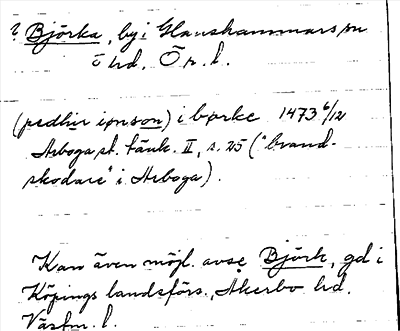 ? Björka, by i Glanshammars sn
ö hd, Ör. l.
(pedhir ionson) i børke 1473 6/12
Arboga st. tänk. II, s. 25 ("brand-
skodare" i Arboga).
Kan även möjl. avse Björk, gd i
Köpings landsförs., Akerbo hd.
Västm. l.